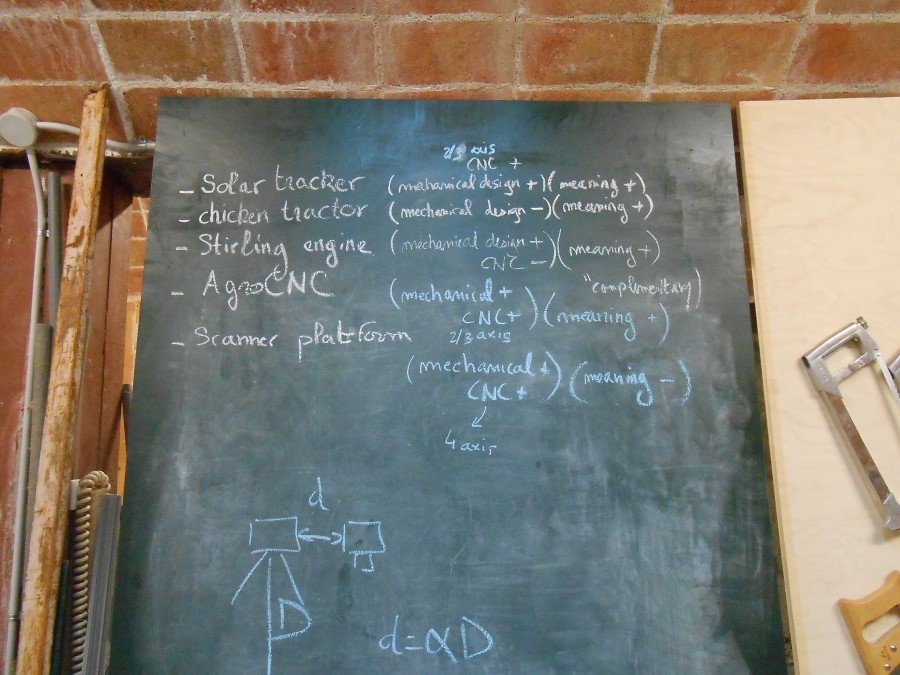 2/3 axis
CNC +
- Solar tracker (mahanical design +)(meaning +)
- chicken tractor (mechanical design -)(meaning +)
- Stirling engine (mechanical design +
CNC -)(meaning +)
- AgroCNC (mechanical + "complimentary)
CNC+)(meaning +)
2/3 axis
- Scanner platform
(mechanical +
CNC +)(meaning -)
4 axis
d
D
d=αD